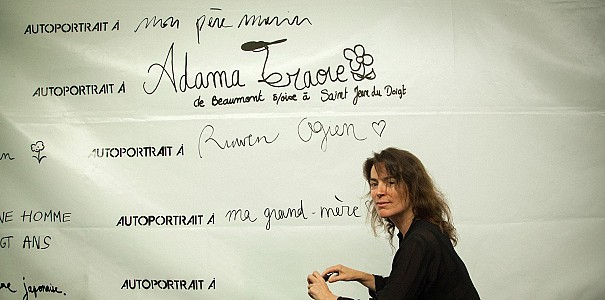 AUTOPORTRAIT À mon père marin
AUTOPORTRAIT À Adama Traore
de Beaumont s/oise à Saint Jean du Doigt
AUTOPORTRAIT À Ruwen Ogien
AUTOPORTRAIT À ma grand-mère
NE HOMME
GT ANS
AUTOPORTRAIT À
re japonaise.